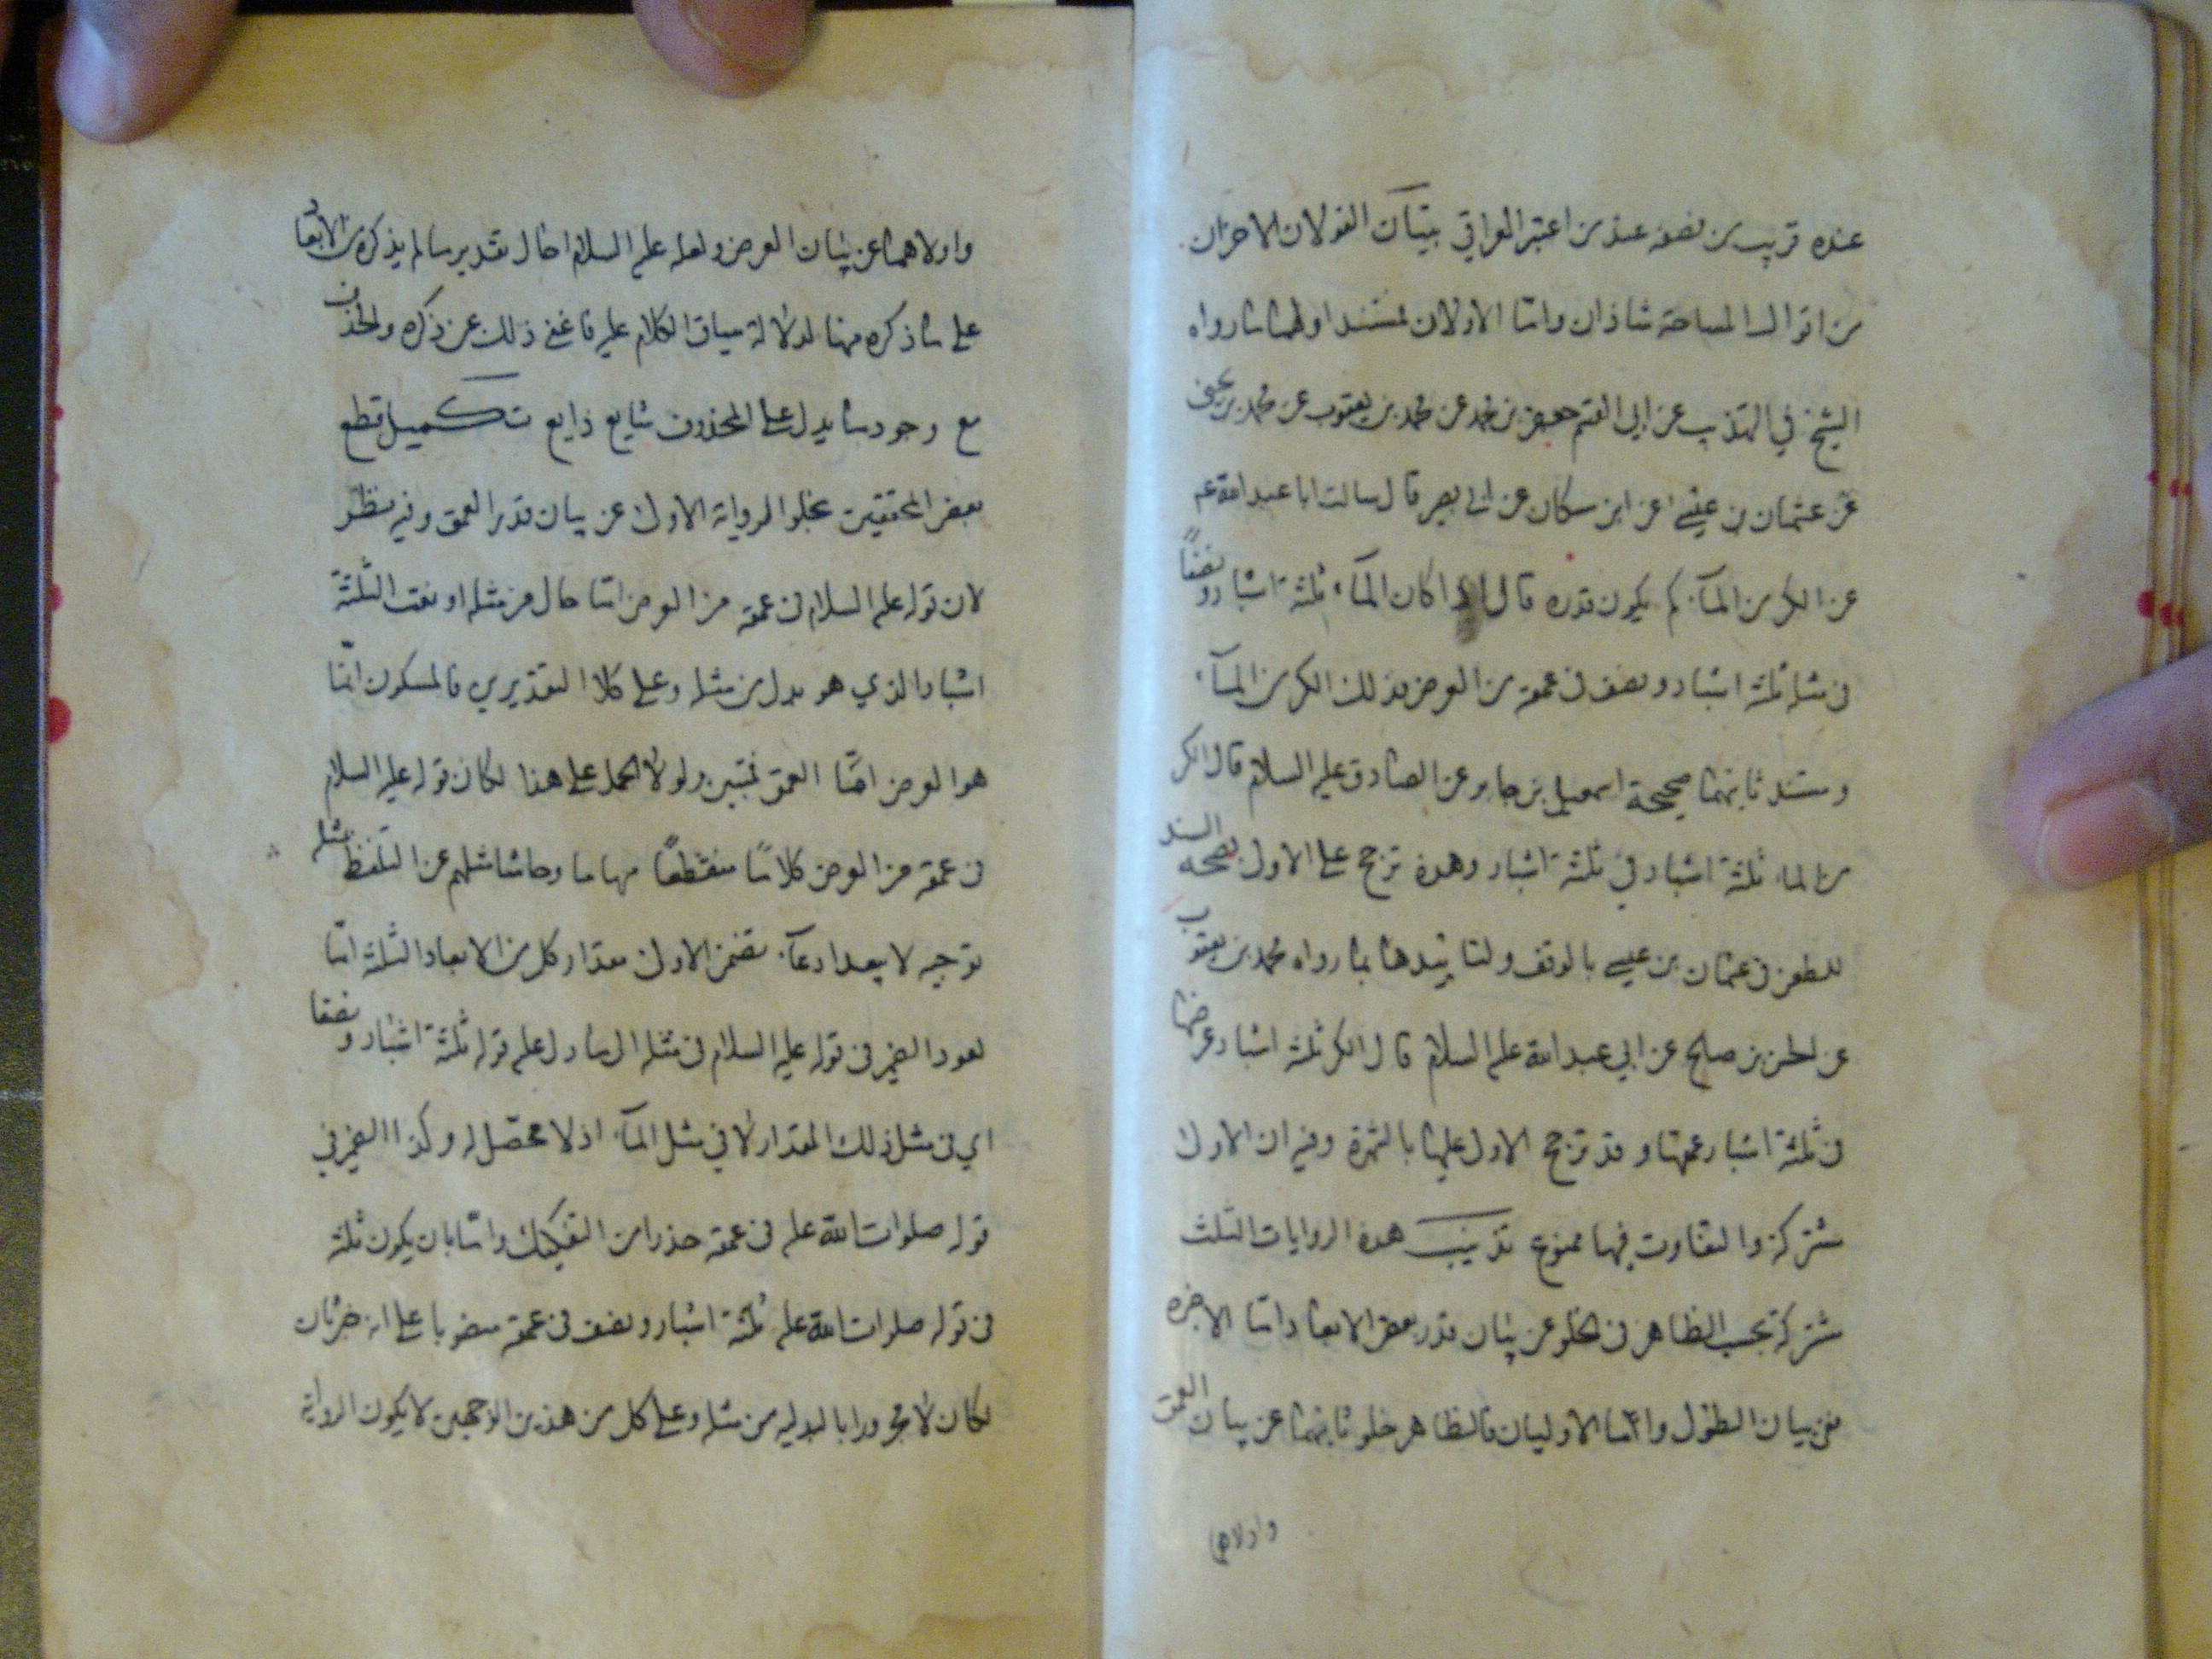 عنده قريب من نصفه عند من اعتبر العراقي بيتان القولان الاخران
من اقوال المساحة شاذان واما الاولان فمستند اولهما ما رواه
الشيخ في التهذيب عن ابي القسم جعفر بن محمد عن محمد بن يعقوب عن محمد بن يحيى
عن عثمان بن عيسى عن ابن مسكان عن ابي بصير قال سالت ابا عبد الله عم
عن الكر من المآء كم يكون قدره قال اذا كان المآء ثلثة اشبار ونصفاً
في مثله ثلثة اشبار ونصف في عمقه من الارض فذلك الكر من المآء
ومستند ثانيهما صحيحة اسمعيل بن جابر عن الصادق عليه السلام قال الكر
من الماء ثلثة اشبار في ثلثة اشبار وهذه ترجح على الاولى بصحة السند
للطعن في عثمان بن عيسى بالوقف ولتاييدها بما رواه محمد بن يعقوب
عن الحسن بن صالح عن ابي عبد الله عليه السلام قال الكر ثلثة اشبار عرضها
في ثلثة اشبار عمقها وقد ترجح الاولى عليها بالشهرة وفيه ان الاولى
مشتركة والتفاوت فيها ممنوع تذنيب هذه الروايات الثلث
مشتركة بحسب الظاهر في الخلو عن بيان قدر بعض الابعاد اما الاخيرة
فعن بيان الطول واما الاوليان فالظاهر خلو ثانيهما عن بيان العمق
واولاهما
واولاهما عن بيان العرض ولعله عليه السلام احال تقدير ما لم يذكره من الابعاد
على ما ذكره منها لدلالة سياق الكلام عليه فاغنى ذلك عن ذكره والحذف
مع وجود ما يدل على المحذوف شايع ذايع تكميل قطع
بعض المحققين بخلو الرواية الاولى عن بيان قدر العمق وفيه نظر
لان قوله عليه السلام في عمقه من الارض اما حال من مثله او نعت لثلثة
اشبار الذي هو بدل من مثله وعلى كلا التقديرين فالمسكوت انما
هو العرض اما العمق فمبين ولولا الحمل على هذا لكان قوله عليه السلام
في عمقه من الارض كلاما منقطعا متهافتا وحاشا مثلهم عن التلفظ بمثله
توجيه لا يبعد ادعاء تضمن الاولى مقدار كل من الابعاد الثلثة اما
بعود الضمير في قوله عليه السلام في مثله الى ما دل عليه قوله ثلثة اشبار ونصفا
اي في مثل ذلك المقدار لا في مثل المآء اذ لا محصل له وكذا الضمير في
قوله صلوات الله عليه في عمقه حذرا من التفكيك واما بان يكون ثلثة
في قوله صلوات الله عليه ثلثة اشبار ونصف في عمقه منصوبا على انه خبر ثان
لكان لا مجرورا بالبدلية من مثله وعلى كل من هذين الوجهين لا يكون الرواية